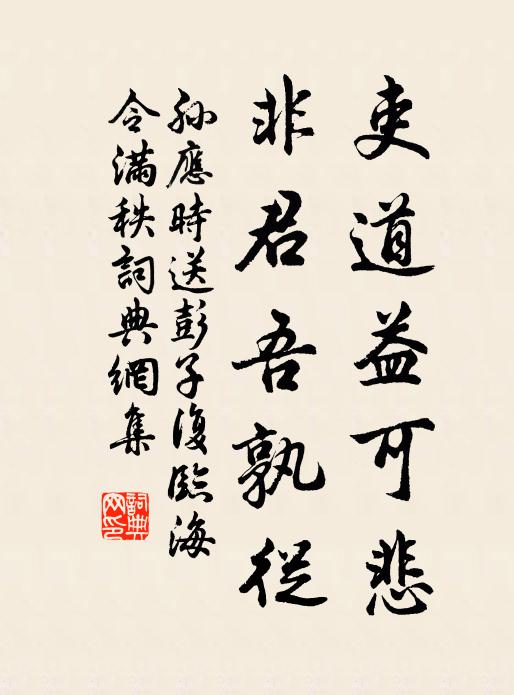 吏道益可悲
非君吾孰從
孫應時送彭子復臨海
令滿秩詞典網集
詞典
网印